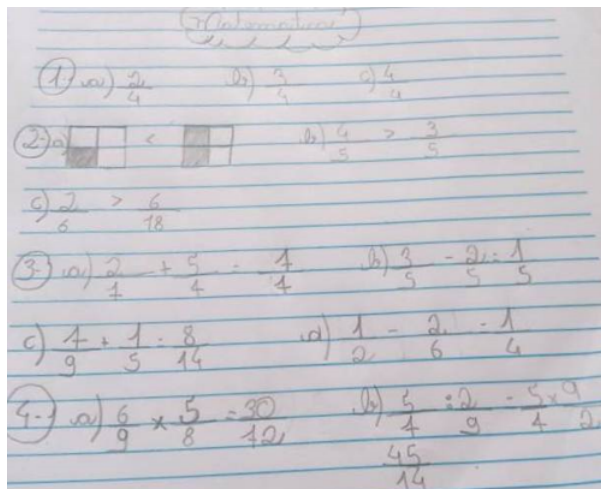 Matemática
1-) a) 2/4 b) 3/4 c) 4/4
2-) a) < b) 4/5 > 3/5
c) 2/6 > 6/18
3-) a) 2/7 + 5/7 = 7/7 b) 3/5 - 2/5 = 1/5
c) 7/9 + 1/5 = 8/14 d) 1/2 - 2/6 = 1/4
4-) a) 6/9 × 5/8 = 30/72 b) 5/7 ÷ 2/9 = 5/7 × 9/2
45/14